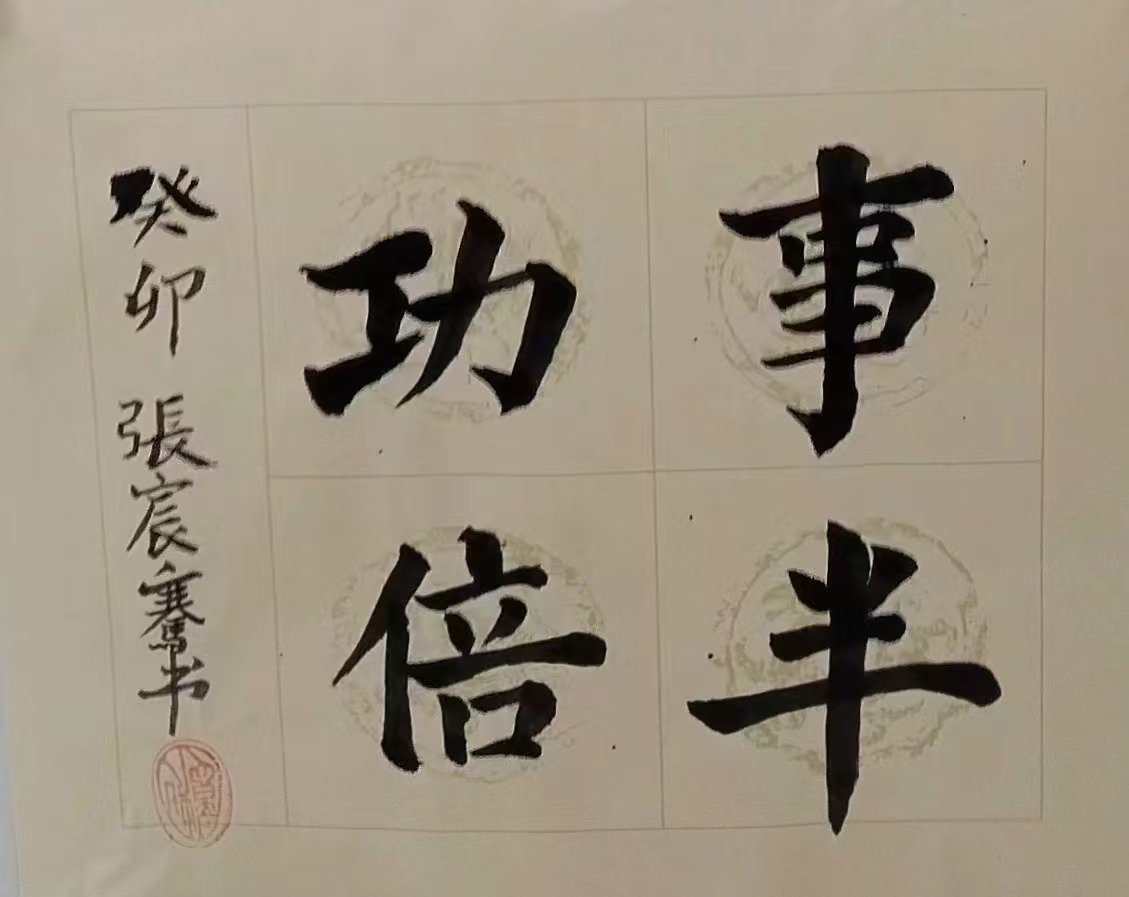 事半
功倍
癸卯 張宸騫书